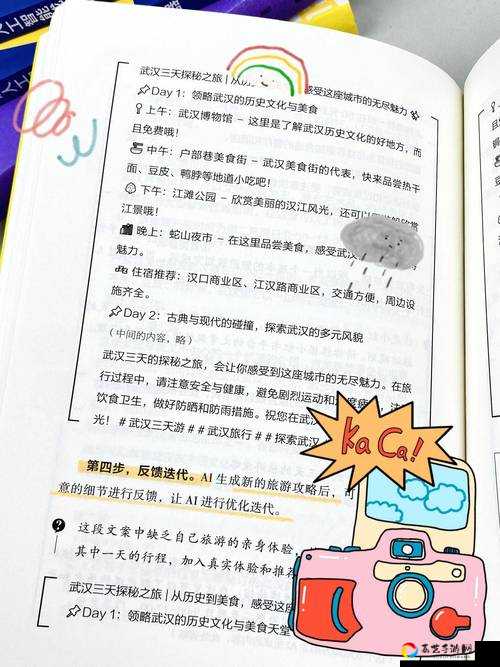 人工智能
武汉三天探秘之旅 | 从历 感受这座城市的无尽魅力
Day 1：领略武汉的历史文化与美食
上午：武汉博物馆 – 这里是了解武汉历史文化的好地方，而
且免费哦！
中午：户部巷美食街 – 武汉美食街的代表，快来品尝热干
面、豆皮、鸭脖等地道小吃吧！
下午：江滩公园 – 欣赏美丽的汉江风光，还可以
江景哦！
晚上：蛇山夜市 – 在这里品尝美食，感受武汉
魅力。
住宿推荐：汉口商业区、江汉路商业区，交通方便，周边设
施齐全。
Day 2：古典与现代的碰撞，探索武汉的多元风貌
（中间的内容，略）
武汉三天的探秘之旅，会让你感受到这座城市的无尽魅力。在旅
行过程中，请注意安全与健康，避免剧烈运动和
饮食卫生，做好防晒和防雨措施。祝您在武汉
光！# 武汉三天游 # # 武汉旅行 # # 探索武汉
第四步，反馈迭代。AI 生成新的旅游攻略后，可
意的细节进行反馈，让 AI 进行优化迭代。
这段文案中缺乏自己旅游的亲身体验，
其中一天的行程，加入真实体验和推荐
武汉三天探秘之旅 | 从历史到美食，感受这座
Day 1：领略武汉的历史文化与美食天堂
KaCa!